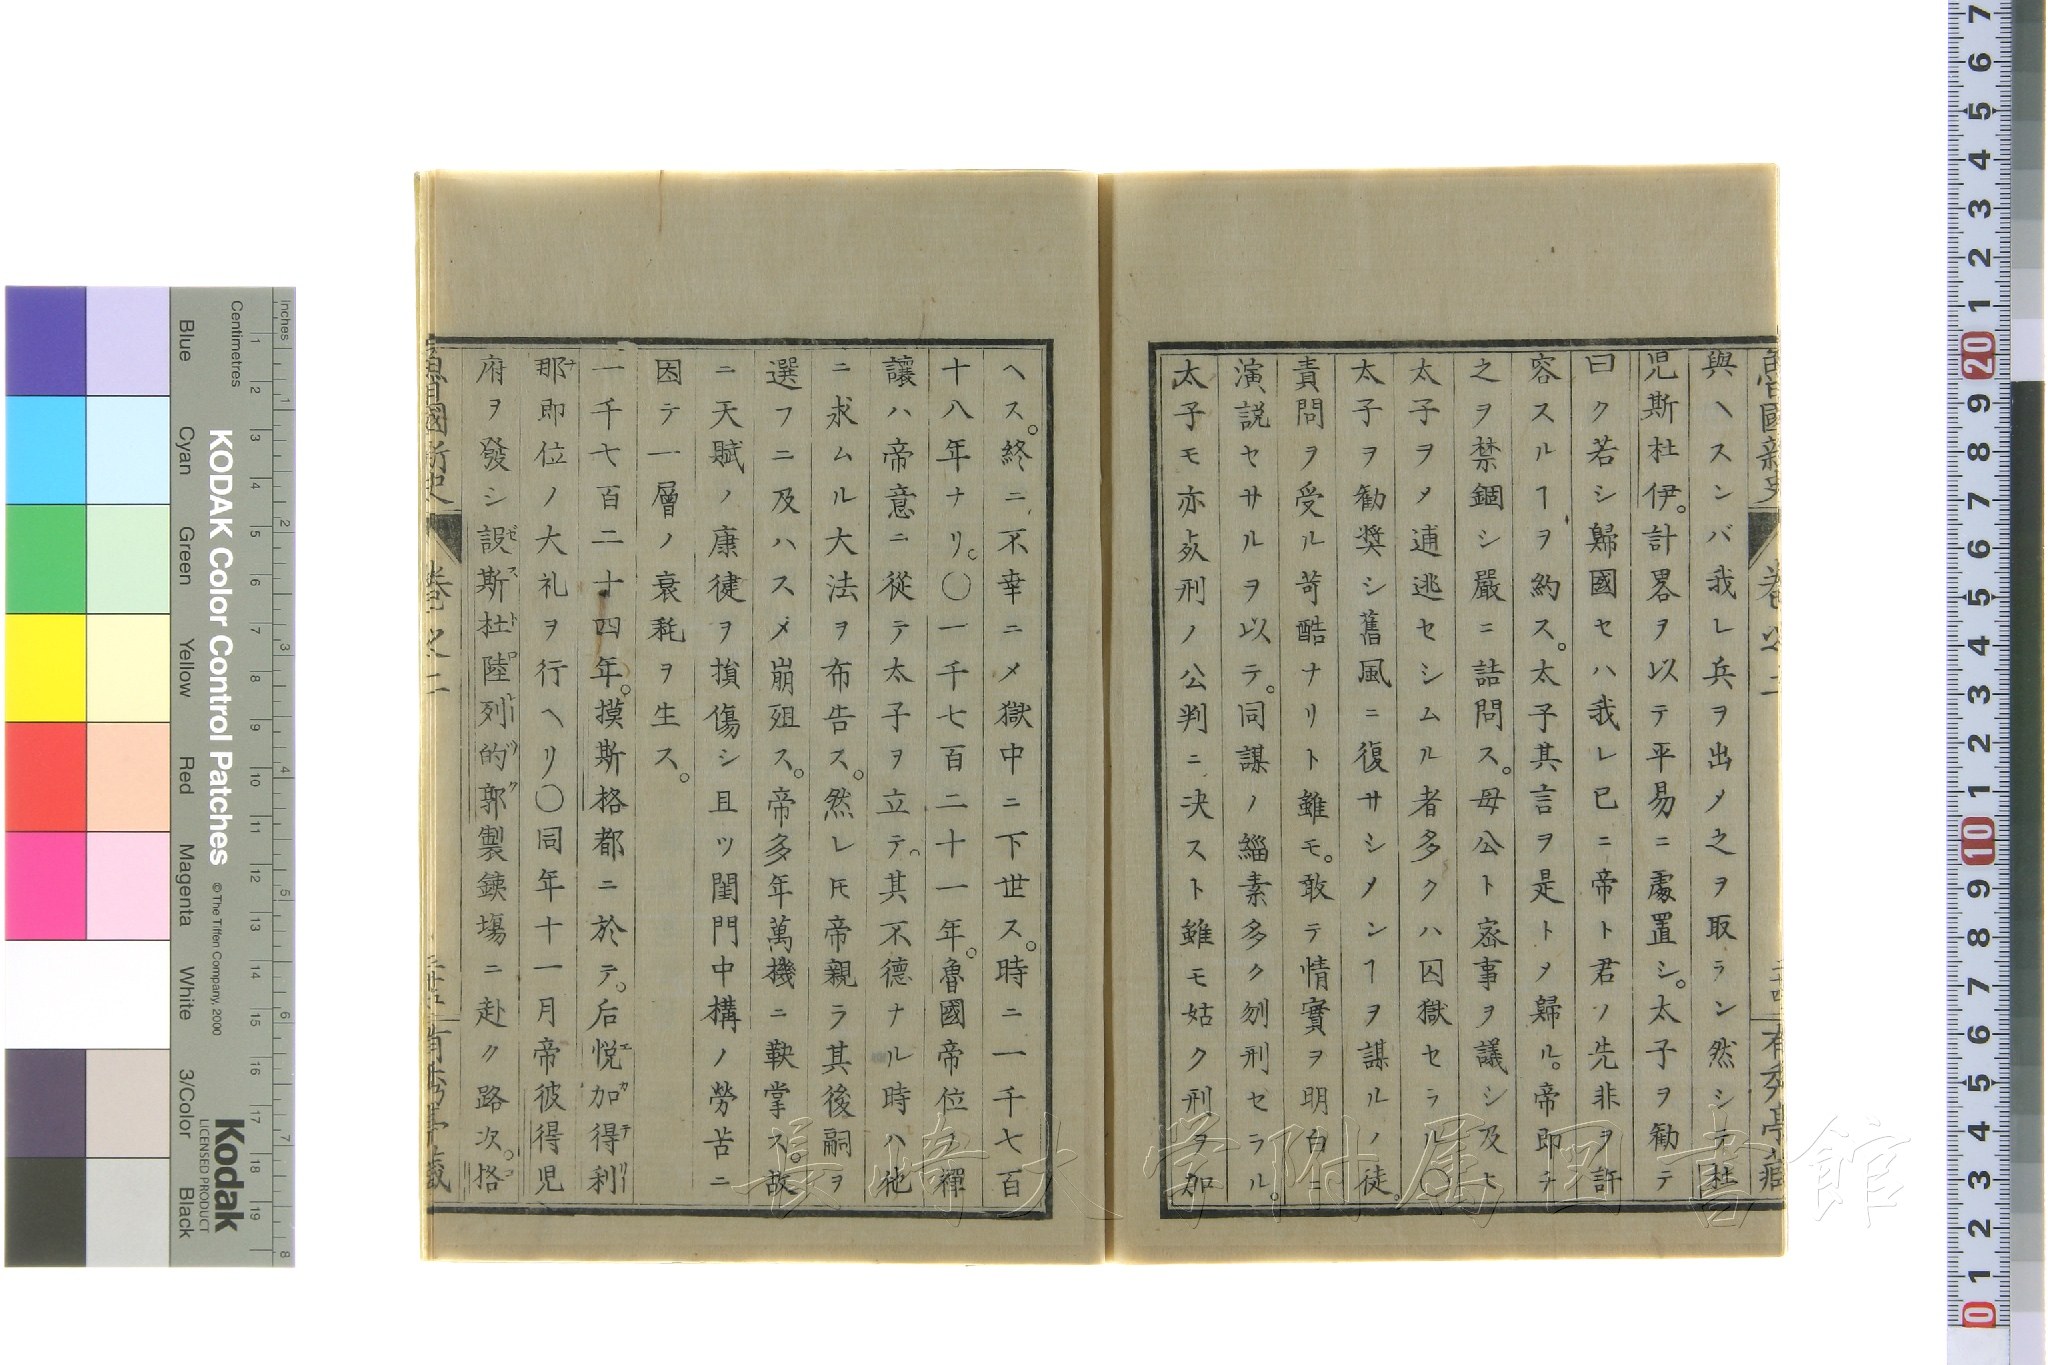 魯國新史 卷之二 二十四 有秀亭藏
與ヘスンバ我レ兵ヲ出メ之ヲ取ラン然シテ杜
児斯杜伊。計畧ヲ以テ平易ニ處置シ。太子ヲ勧テ
曰ク若シ歸國セハ我レ已ニ帝ト君ソ先非ヲ許
容スルヿヲ約ス。太子其言ヲ是トメ歸ル。帝即チ
之ヲ禁錮シ嚴ニ詰問ス。母公ト密事ヲ議シ及ヒ
太子ヲメ逋逃セシムル者多クハ囚獄セラル〇
太子ヲ勧奬シ舊風ニ復サシメンヿヲ謀ルノ徒。
責問ヲ受ル苛酷ナリト雖モ。敢テ情實ヲ明白ニ
演説セサルヲ以テ。同謀ノ緇素多ク刎刑セラル。
太子モ亦死刑ノ公判ニ决スト雖モ姑ク刑ヲ加
ヘス。終ニ不幸ニメ獄中ニ下世ス。時ニ一千七百
十八年ナリ。〇一千七百二十一年。魯國帝位ノ禪
讓ハ帝意ニ從テ太子ヲ立テ、其不德ナル時ハ他
ニ求ムル大法ヲ布告ス。然レ𪜈帝親ラ其後嗣ヲ
選フニ及ハスメ崩殂ス。帝多年萬機ニ鞅掌ス。故
ニ天賦ノ康健ヲ損傷シ且ツ閨門中構ノ勞苦ニ
因テ一層ノ衰耗ヲ生ス。
一千七百二十四年。摸斯格都ニ於テ。后悦加得利
那即位ノ大礼ヲ行ヘリ〇同年十一月帝彼得児
府ヲ發シ設斯杜陸列的郭製銕塲ニ赴ク路次。格
魯國新史 卷之二 二十五 有秀亭藏
Blue
Cyan
Green
Yellow
Red
Magenta
White
3/Color
Black
Centimetres
Inches
KODAK Color Control Patches
© The Tiffen Company, 2000
Kodak
LICENSED PRODUCT
長崎大学附属図書館